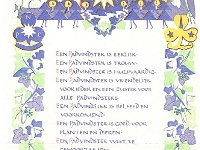 EEN PADVINDSTER IS EERLIJK.
EEN PADVINDSTER IS TROUW.
EEN PADVINDSTER IS HULPVAARDIG.
EEN PADVINDSTER IS VRIENDELIJK
VOOR IEDER EN EEN ZUSTER VOOR
ALLE PADVINDSTERS.
EEN PADVINDSTER IS BELEEFD EN
VOORKOMEND.
EEN PADVINDSTER IS GOED VOOR
PLANTEN EN DIEREN.
EEN PADVINDSTER WEET TE
GEHOORZAMEN.